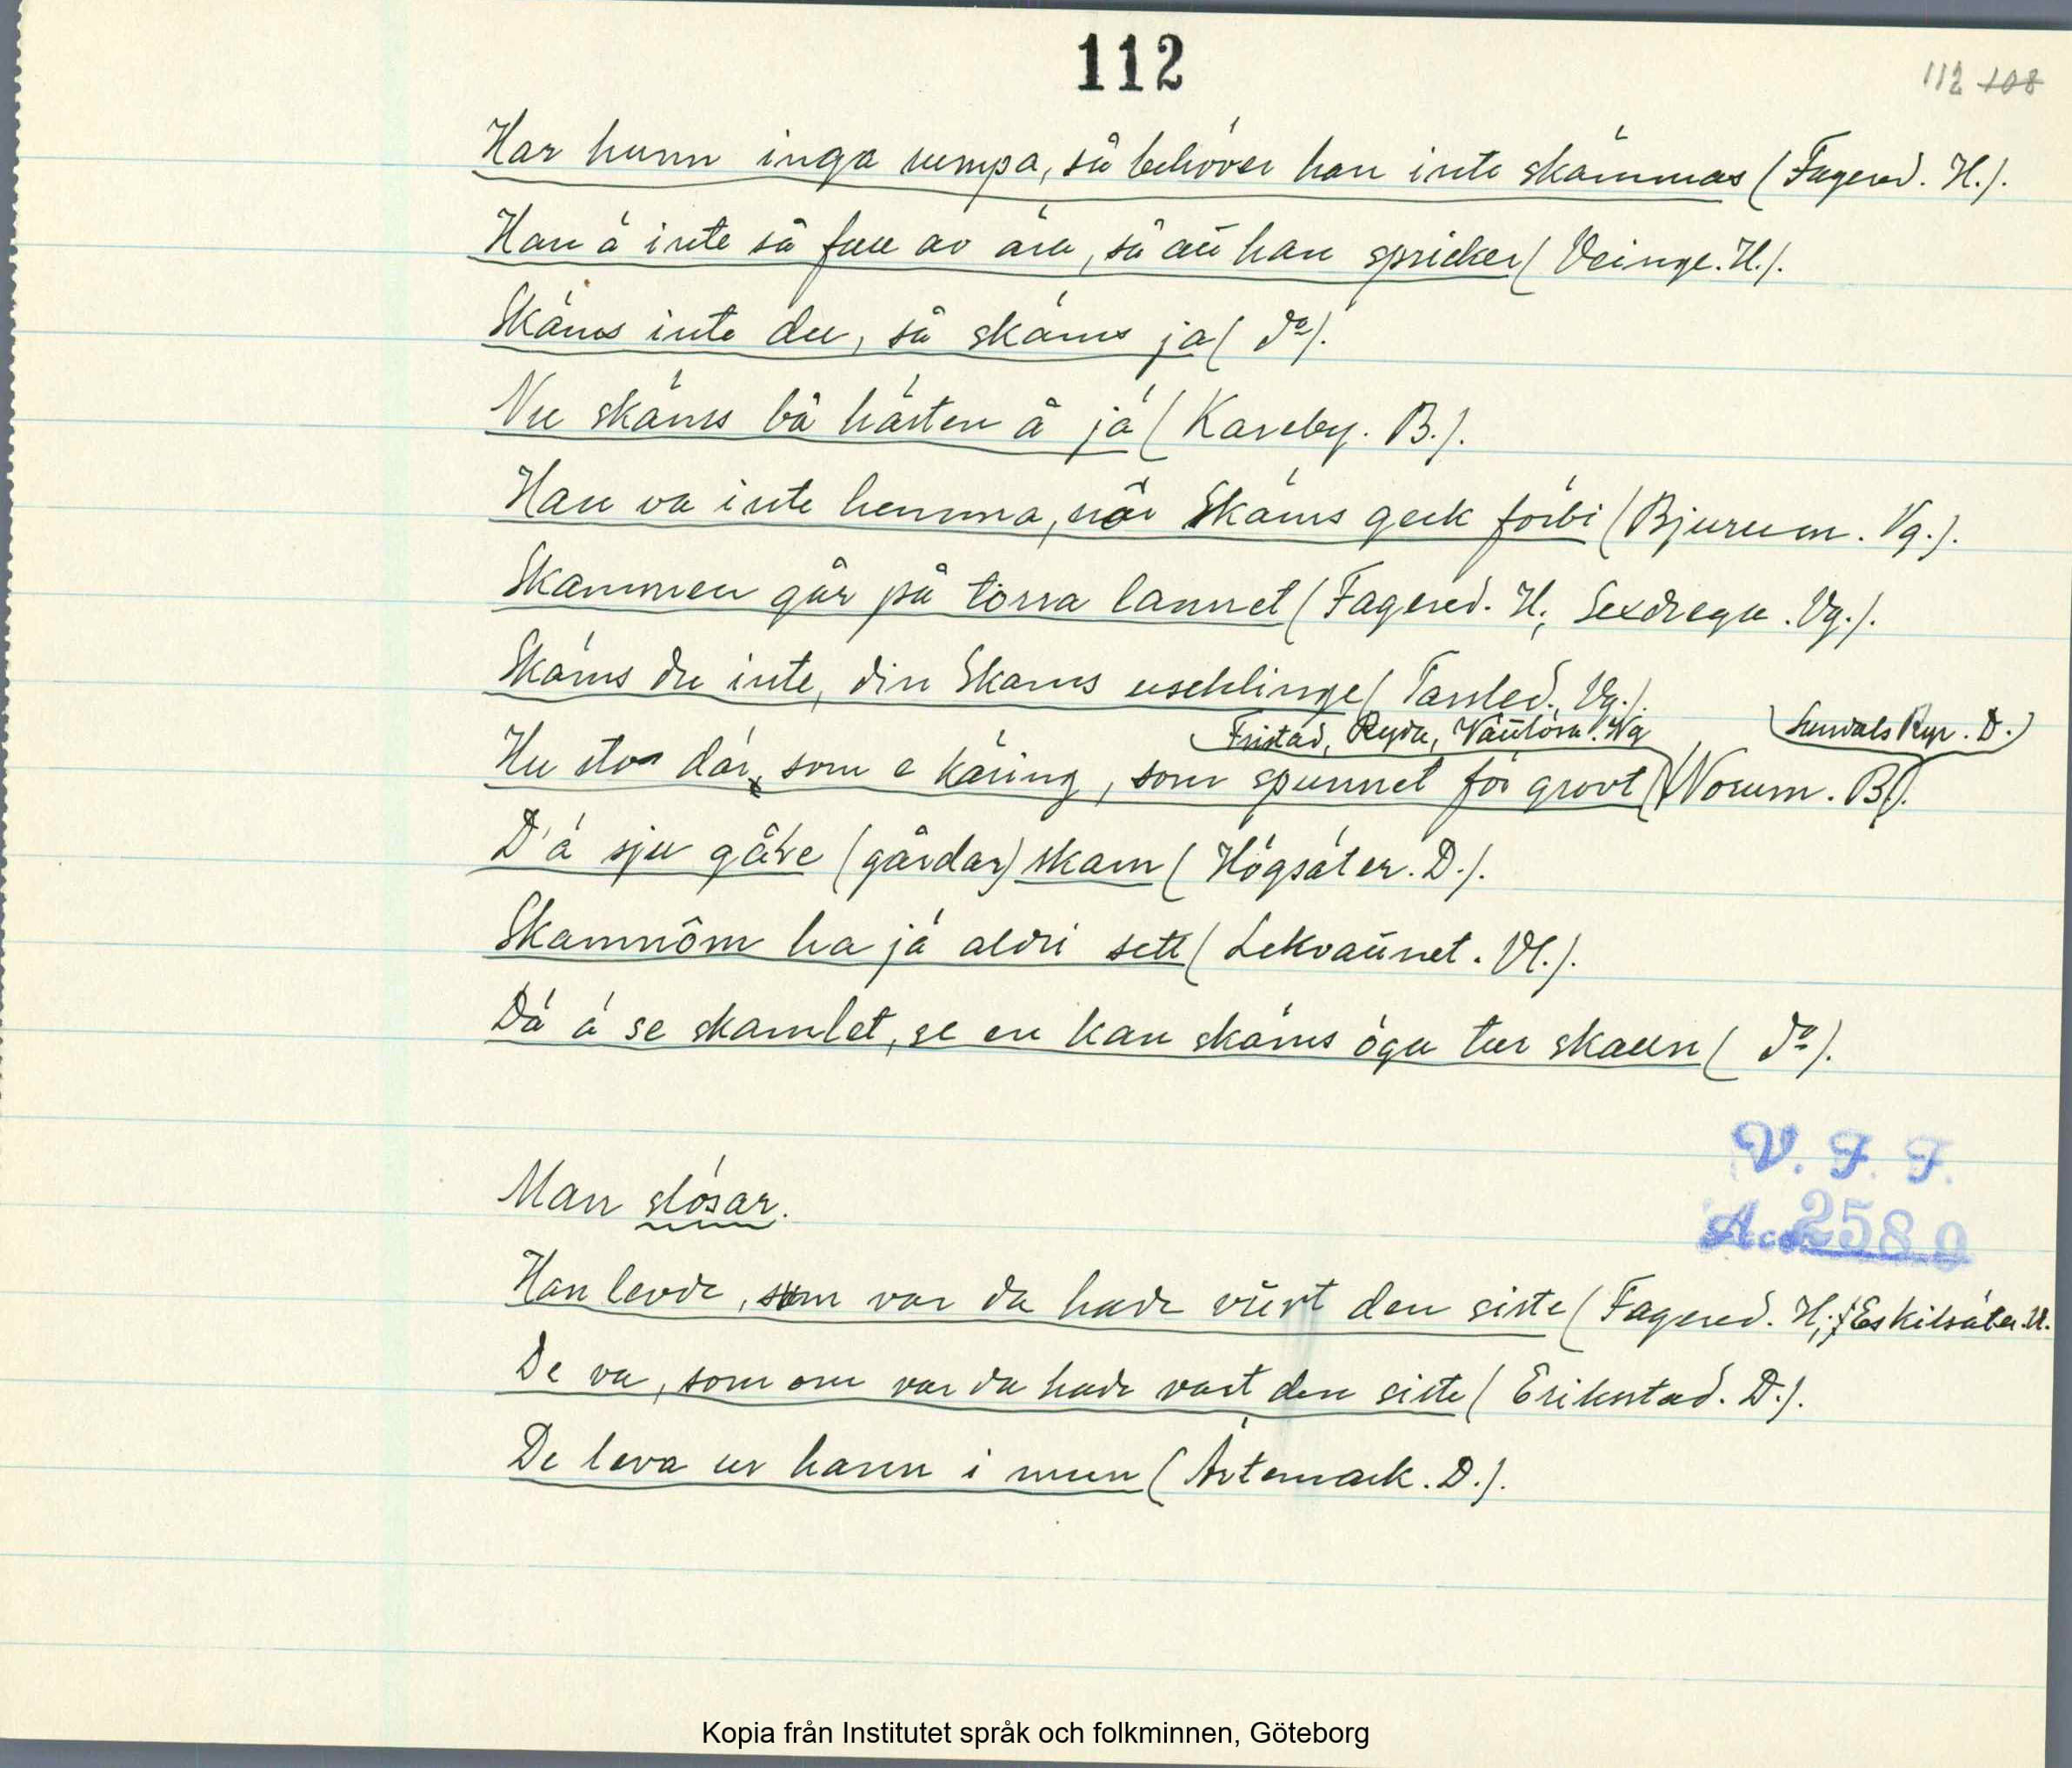 112
112 108
Har hunn inga rumpa, så behöver han inte skämmas (Fagered. H.).
Han ä inte så full av ära, så att han spricker (Veinge. H.).
Skäms inte du, så skäms ja (do).
Nu skäms bå hästen å jä (Kareby. B.).
Han va inte hemma, när Skäms geck förbi (Bjurum. Vg.).
Skammen går på törra lannet (Fagered. H; Sexdrega. Vg.).
Skäms du inte, din Skams uschlinge (Tarsled. Vg.).
Fristad, Ryda, Vättlösa. Vg
Sundals Ryr. D.
Hu sto där, som e käring, som spunnet för grovt (Norum. B.).
D'ä sju gåre (gårdar) skam (Högsäter. D.).
Skamnôm ha jä aldri sett (Lekvattnet. Vl.).
Dä ä se skamlet, se en kan skäms öga tur skaun (do).
Man slösar.
V. F. F.
Acc. 2589
Han levde, som var da hade vurt den siste (Fagered. H; Eskilsäter. Vl.
De va, som om var da hade vart den siste (Erikstad. D.).
De leva ur hann i mun (Ärtemark. D.).
Kopia från Institutet språk och folkminnen, Göteborg